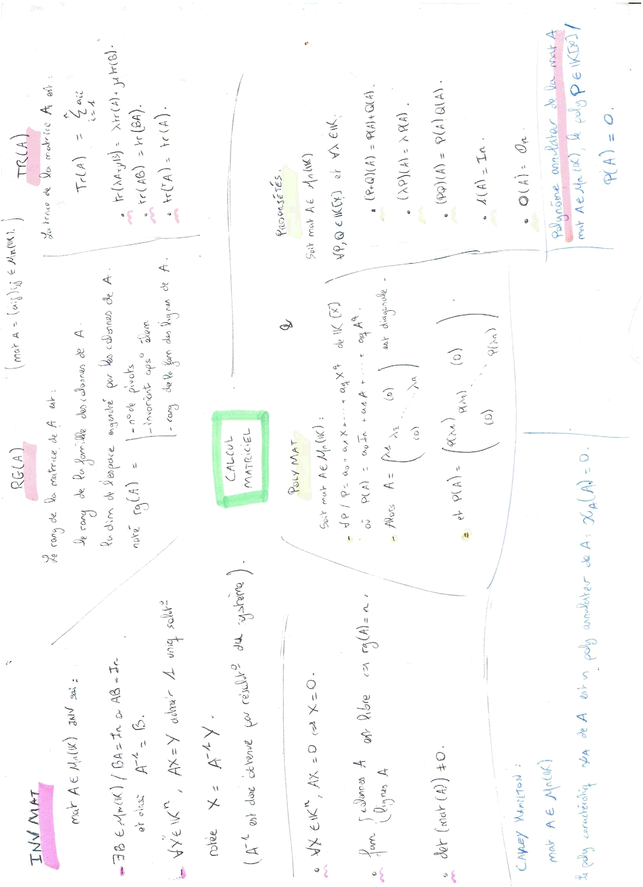 INV MAT
mat A ∈ Mn(K) INV ssi :
- ∃B ∈ Mn(K) / BA = In ou AB = In
et ainsi A⁻¹ = B.
- ∀Y ∈ Kⁿ, AX = Y admet 1 uniq solutᵒ
notée X = A⁻¹Y.
(A⁻¹ est donc obtenue par résolutᵒ du système).
• ∀X ∈ Kⁿ, AX = 0 ⇔ X = 0.
• fam { colonnes A
lignes A est libre ⇔ rg(A) = n.
• det (mat(A)) ≠ 0.
CAYLEY HAMILTON :
mat A ∈ Mn(K)
le poly caractéristiq χA de A est 1 poly annulateur de A : χA(A) = 0.
RG(A)
Le rang de la matrice de A est :
le rang de la famille des colonnes de A.
la dim de l'espace engendré par les colonnes de A.
noté rg(A) =
- nᵒ de pivots
- invariant aps ᵒ élém
- rang de la fam des lignes de A.
CALCUL
MATRICIEL
POLY MAT
Soit mat A ∈ Mn(K) :
- ∀P / P = a₀ + a₁X + ... + aqX^q de K[X]
où P(A) = a₀In + a₁A + ... + aqA^q.
- Alors A = ( λ₁ λ₂ (0) (0) λn ) est diagonale.
et P(A) = ( P(λ₁) P(λ₂) (0) (0) P(λn) ).
( mat A = (aij)ij ∈ Mn(K). )
TR(A)
La trace de la matrice A est :
Tr(A) = Σ aii
i=1
n
• tr(λA+μB) = λtr(A) + μtr(B).
• tr(AB) = tr(BA).
• tr(ᵀA) = tr(A).
PROPRIÉTÉS.
Soit mat A ∈ Mn(K)
∀P,Q ∈ K[X] et ∀λ ∈ K.
• (P+Q)(A) = P(A)+Q(A).
• (λP)(A) = λP(A).
• (PQ)(A) = P(A)Q(A).
• 1(A) = In.
• 0(A) = 0n.
Polynôme annulateur de la mat A
mat A ∈ Mn(K), le poly P ∈ K[X] /
P(A) = 0.